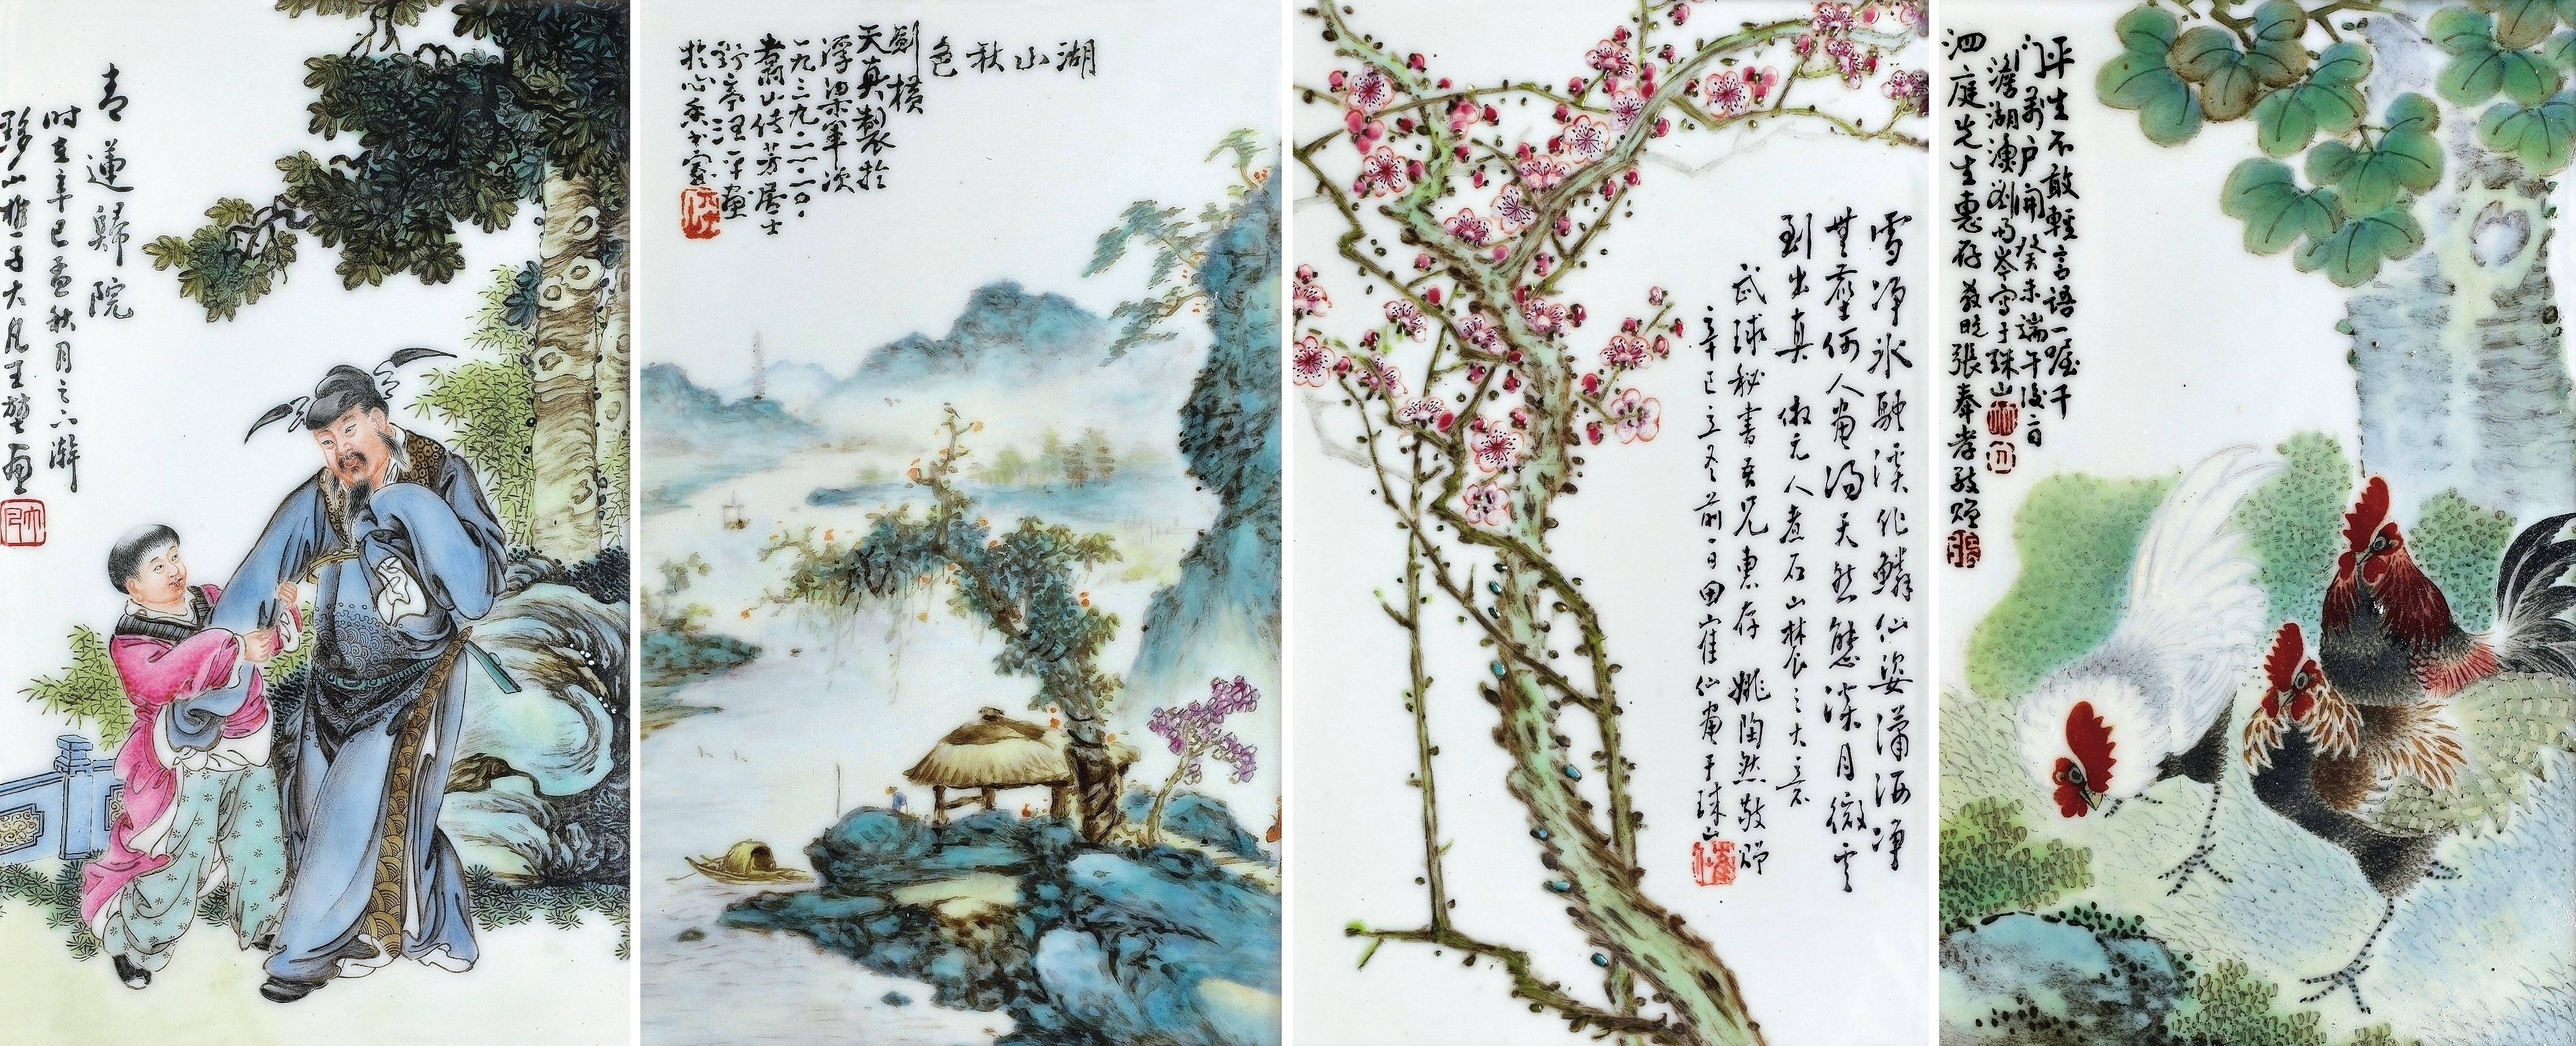 青蓮歸院
時在辛巳孟秋月之六澣
黟山樵子大凡王堃画
湖山秋色
劍橫
天真製於
浮梁軍次
一九三九·一二·二〇·
蕭山传芳居士
野亭汪平畫
於心香书室
雪淨冰融溪作鱗仙姿瀟洒淨
無塵何人畵得天然態淡月微雲
到出真 傲元人煮石山林農之大意
武球秘書吾兄惠存 姚陶然敬贈
辛巳立冬前一日田崔仙畫于珠山
平生不敢輕言語一喔千
门萬户開 癸未端午後二日
澹湖漁劉雨岑寫于珠山
泗庭先生惠存 教晚張奉孝敬贈